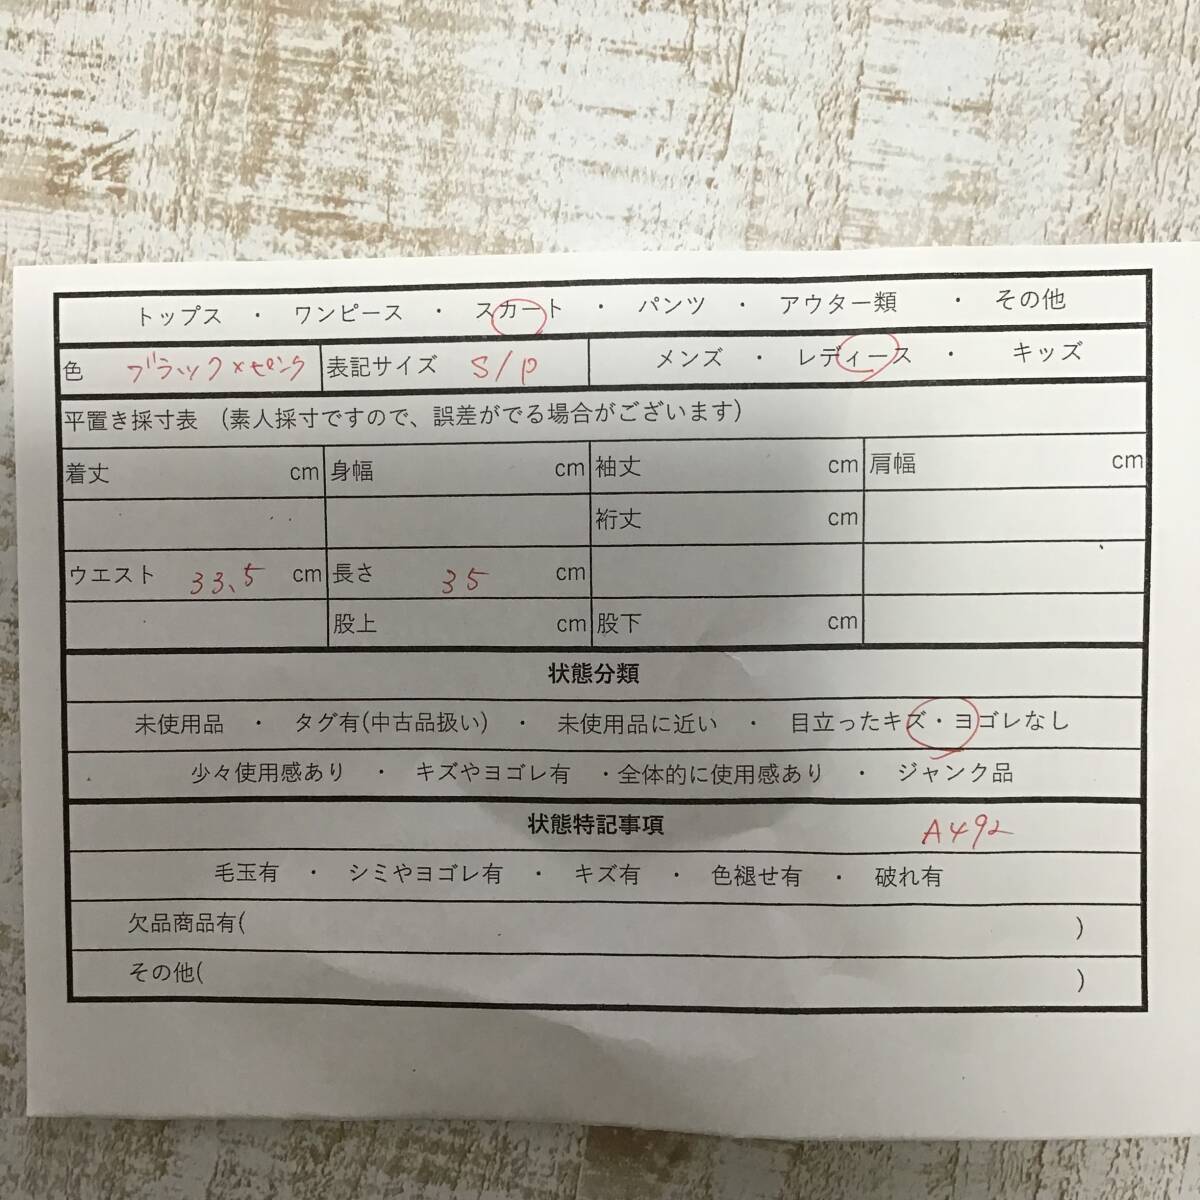 トップス ・ ワンピース ・ スカート ・ パンツ ・ アウター類 ・ その他
色 ブラック×ピンク 表記サイズ S/P メンズ ・ レディース ・ キッズ
平置き採寸表 （素人採寸ですので、誤差がでる場合がございます）
着丈 cm 身幅 cm 袖丈 cm 肩幅 cm
裄丈 cm
ウエスト 33.5 cm 長さ 35 cm
股上 cm 股下 cm
状態分類
未使用品 ・ タグ有(中古品扱い) ・ 未使用品に近い ・ 目立ったキズ・ヨゴレなし
少々使用感あり ・ キズやヨゴレ有 ・全体的に使用感あり ・ ジャンク品
状態特記事項 A492
毛玉有 ・ シミやヨゴレ有 ・ キズ有 ・ 色褪せ有 ・ 破れ有
欠品商品有( )
その他( )